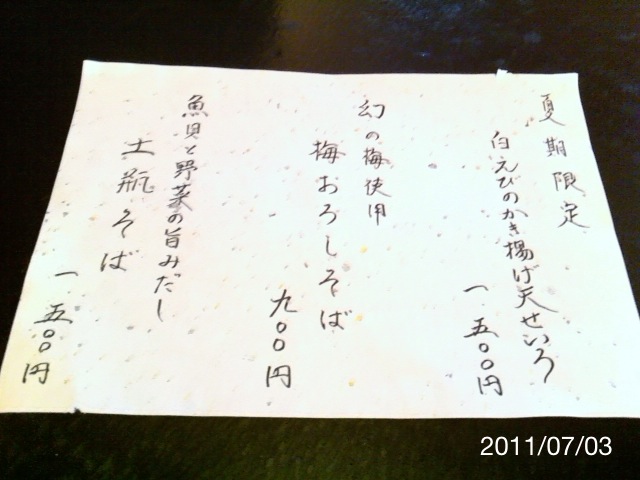 夏期限定
白えびのかき揚げ天せいろ
一五〇〇円
幻の梅使用
梅おろしそば
九〇〇円
魚貝と野菜の旨みだし
土瓶そば
一五〇〇円
2011/07/03